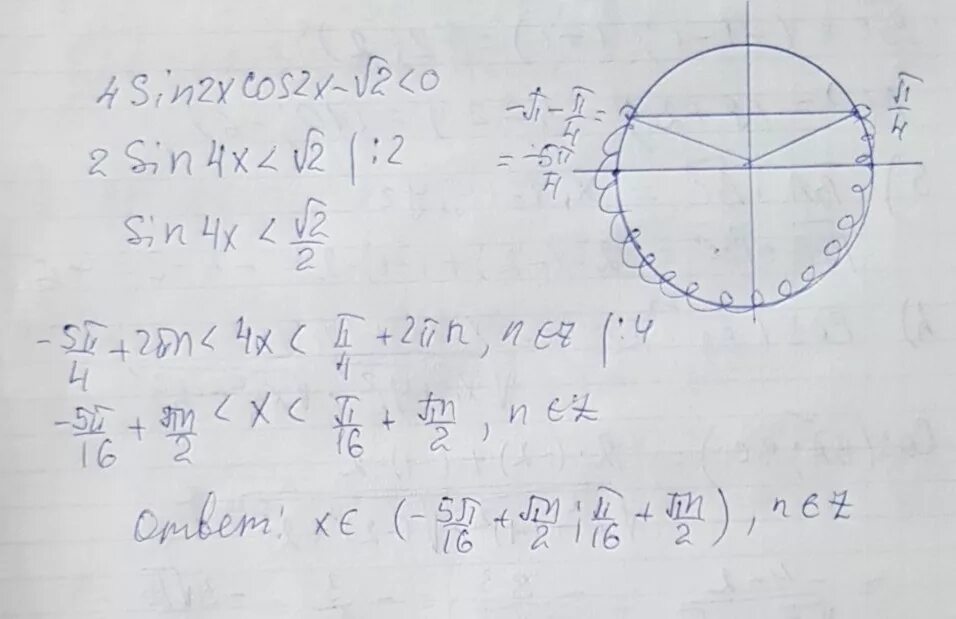 4 Sin2x cos2x - √2 < 0
2 Sin 4x < √2 | : 2
Sin 4x < √2/2
-π - π/4 =
= -5π/4
π/4
-5π/4 + 2πn < 4x < π/4 + 2πn, n ∈ Z | : 4
-5π/16 + πn/2 < x < π/16 + πn/2, n ∈ Z
Ответ: x ∈ (-5π/16 + πn/2; π/16 + πn/2), n ∈ Z